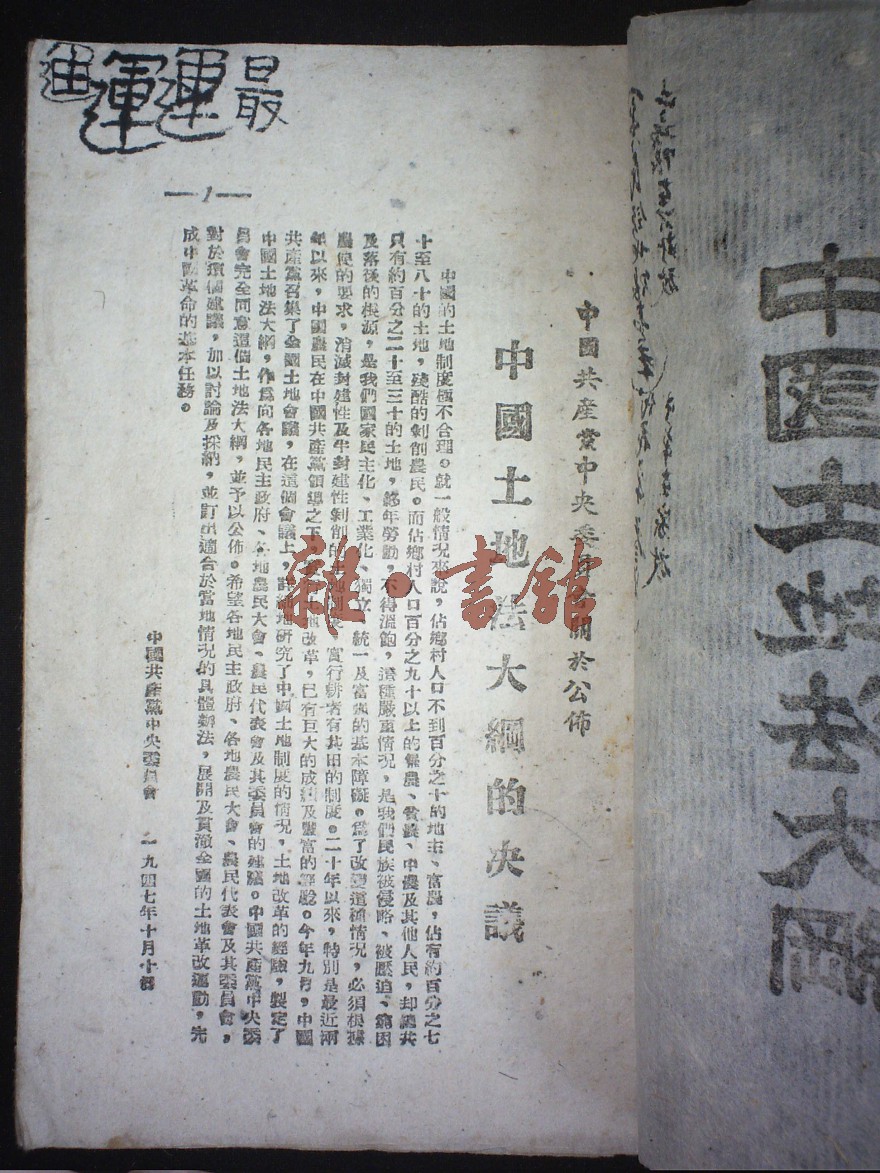 中國土地法大綱
中國共產黨中央委員會關於公佈
中國土地法大綱的決議
中國的土地制度極不合理。就一般情況來說，佔鄉村人口不到百分之十的地主、富農，佔有約百分之七
十至八十的土地，殘酷的剝削農民。而佔鄉村人口百分之九十以上的僱農、貧農、中農及其他人民，却總共
只有約百分之二十至三十的土地，終年勞動，不得溫飽，這種嚴重情況，是我們民族被侵略、被壓迫、窮困
及落後的根源，是我們國家民主化、工業化、獨立、統一及富強的基本障礙。爲了改變這種情況，必須根據
農民的要求，消滅封建性及半封建性剝削的土地制度，實行耕者有其田的制度。二十年以來，特別是最近兩
年以來，中國農民在中國共產黨領導之下，土地改革，已有巨大的成績及豐富的經驗。今年九月，中國
共產黨召集了全國土地會議，在這個會議上，詳細地研究了中國土地制度的情況，土地改革的經驗，製定了
中國土地法大綱，作爲向各地民主政府、各地農民大會、農民代表會及其委員會的建議。中國共產黨中央委
員會完全同意這個土地法大綱，並予以公佈。希望各地民主政府、各地農民大會、農民代表會及其委員會，
對於這個建議，加以討論及採納，並訂出適合於當地情況的具體辦法，展開及貫徹全國的土地革改運動，完
成中國革命的基本任務。
中國共產黨中央委員會 一九四七年十月十日
—1—
最運運迪
雜·書館